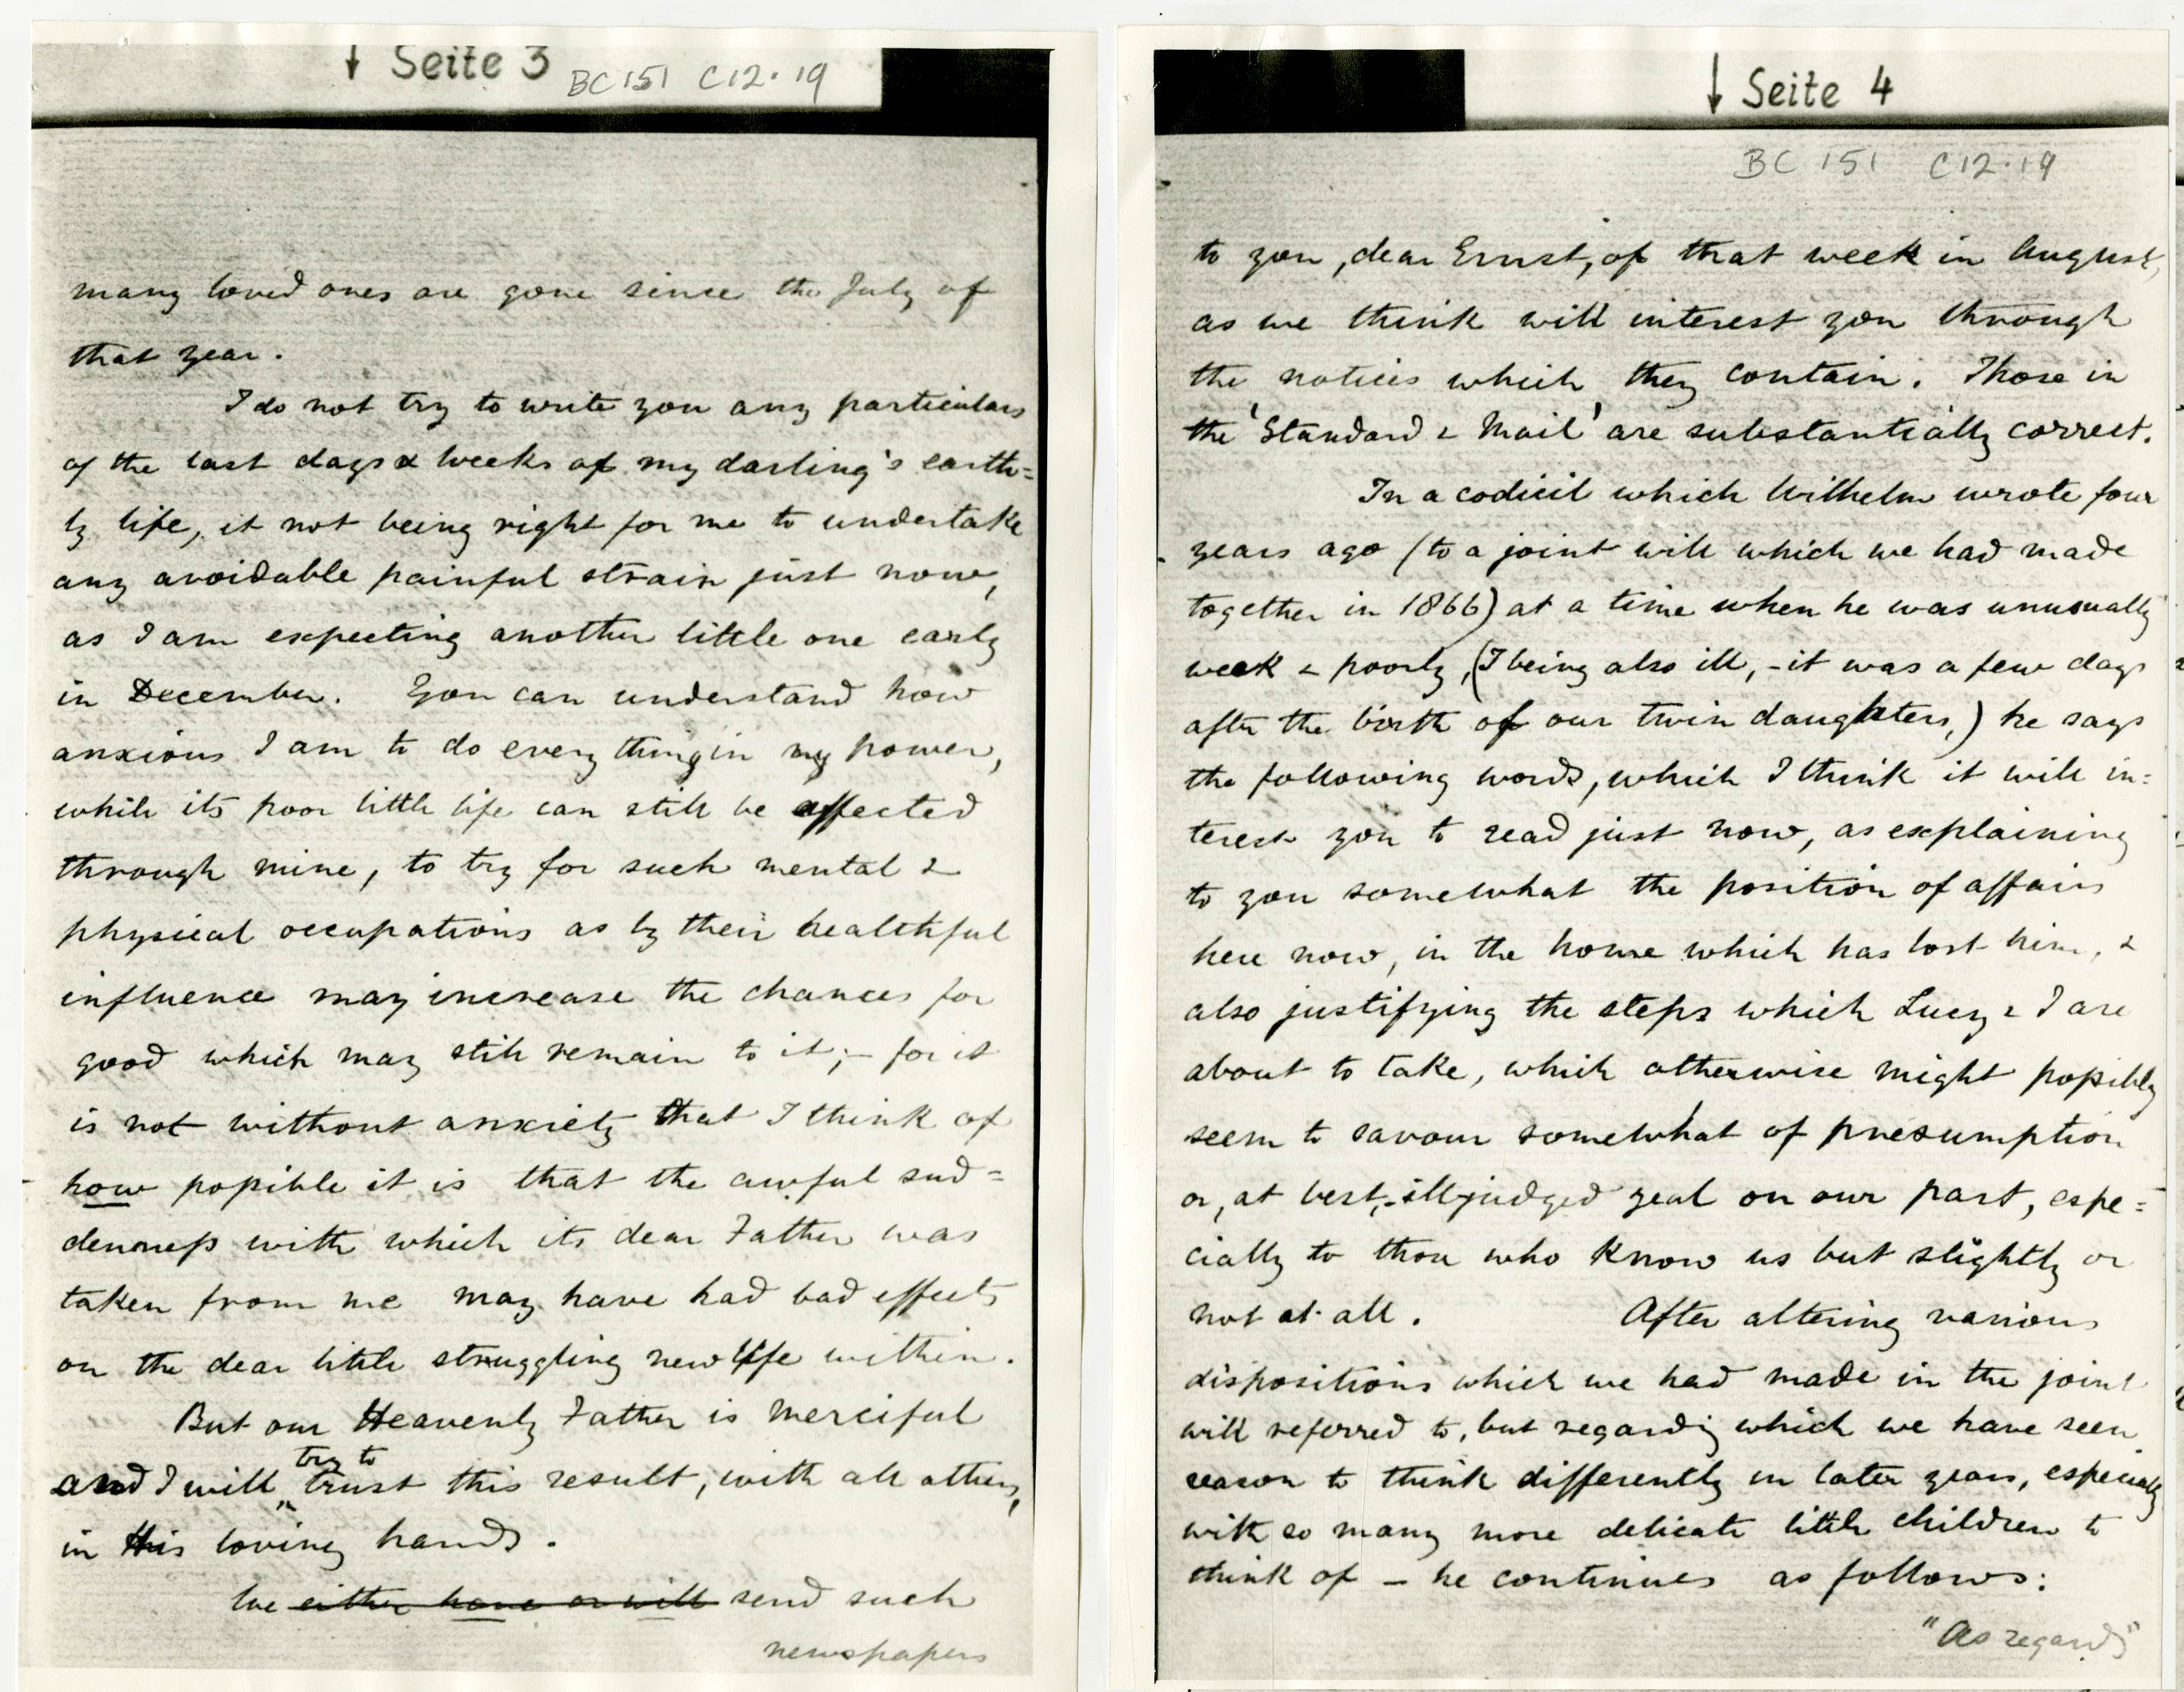 ↓ Seite 3
BC 151 C12.19
many loved ones are gone since the July of
that year.
I do not try to write you any particulars
of the last days & weeks of my darling's earth=
ly life, it not being right for me to undertake
any avoidable painful strain just now,
as I am expecting another little one early
in December. You can understand how
anxious I am to do every thing in my power,
while its poor little life can still be affected
through mine, to try for such mental &
physical occupations as by their healthful
influence may increase the chances for
good which may still remain to it; – for it
is not without anxiety that I think of
how possible it is that the awful sud=
denness with which its dear Father was
taken from me may have had bad effects
on the dear little struggling new life within.
But our Heavenly Father is merciful
try to
and I will trust this result, with all others,
in His loving hands.
We either have or will send such
newspapers
↓ Seite 4
BC 151 C12.19
to you, dear Ernst, of that week in August,
as we think will interest you through
the notices which they contain. Those in
the 'Standard & Mail' are substantially correct.
In a codicil which Wilhelm wrote four
years ago (to a joint will which we had made
together in 1866) at a time when he was unusually
weak & poorly, (I being also ill, – it was a few days
after the birth of our twin daughters,) he says
the following words, which I think it will in=
terest you to read just now, as explaining
to you somewhat the position of affairs
here now, in the home which has lost him, &
also justifying the steps which Lucy & I are
about to take, which otherwise might possibly
seem to savour somewhat of presumption
or, at best, ill-judged zeal on our part, espe=
cially to those who know us but slightly or
not at all. After altering various
dispositions which we had made in the joint
will referred to, but regardg which we have seen
reason to think differently in later years, especially
with so many more delicate little children to
think of – he continues as follows:
"As regards"